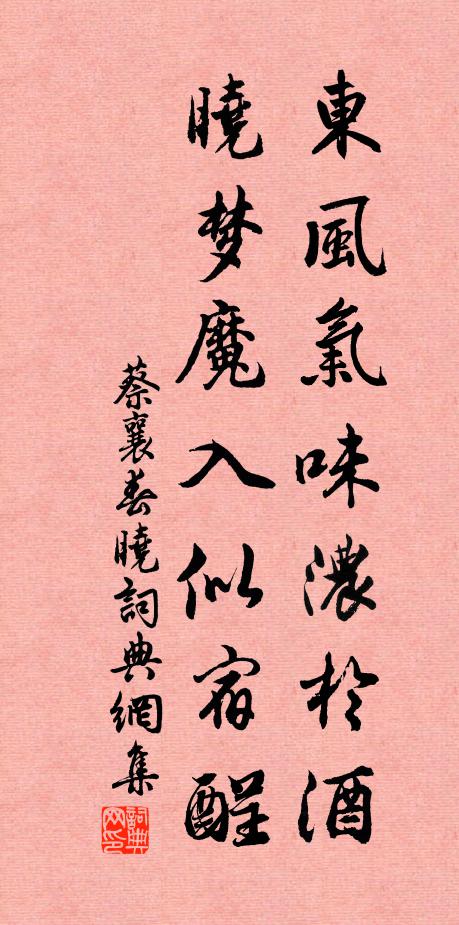 東風氣味濃於酒
曉梦魔入似宿醒
蔡襄春曉詞典網集
詞典
网印